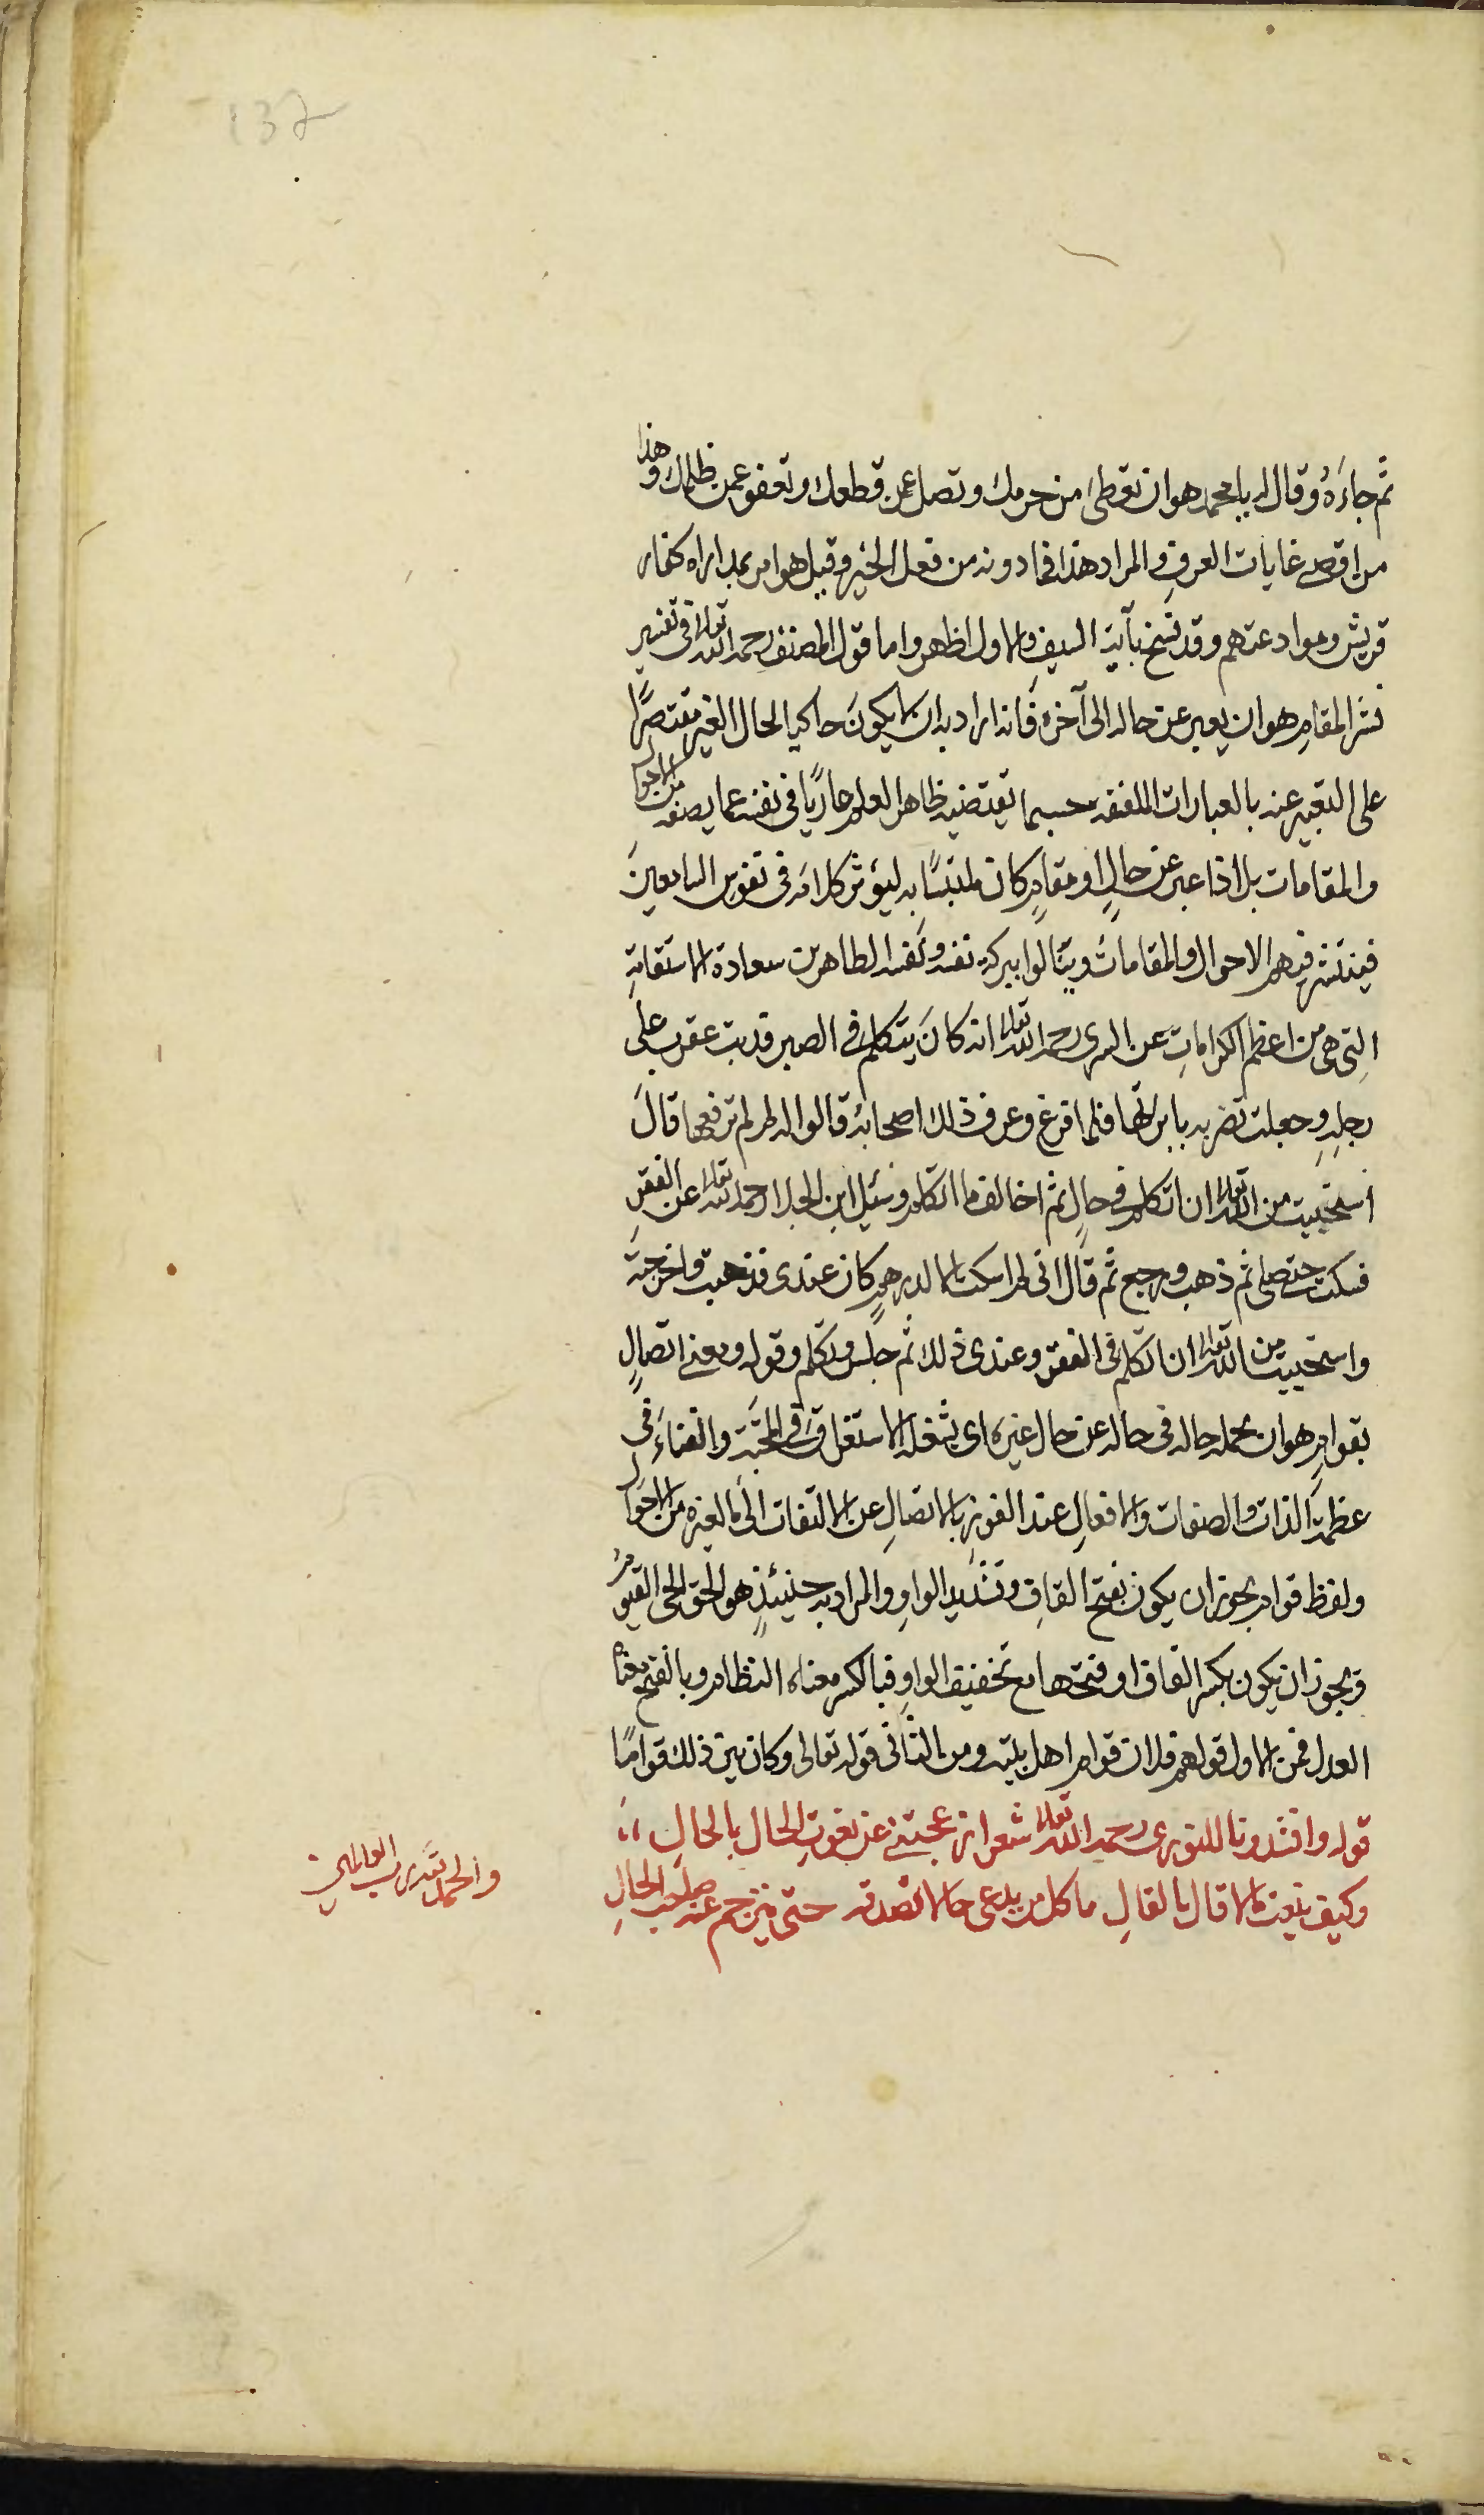 137
ثم جاءَهُ وقال له يا محمد هو ان تعطى من حرمك وتصل عمن قطعك وتعفو عمن ظلمك وهذا
من اقصى غايات العرف والمراد هذا فما دونه من فعل الخير وقيل هو امر بمداراه كفار
قريش وموادعتهم وقد نسخ بآية السيفِ والاول اظهر واما قول المصنف رحمه الله تعالى فى تفسير
نشر المقامِ هو ان يعبر عن حاله الى آخره فَانه اراد به ان لا يكونَ حاكيا لحال الغير مقتصرًا
على التعبير عنه بالعبارات الملفقه حسبما تقتضيه ظاهر العلم عاريًا فى نفسه عما يصفه من الاحوال
والمقامات بل اذا عبر عن حالٍ او مقامٍ كان ملتبسًا به ليؤثر كلامه فى نفوس السامعينَ
فينتشر فيهم الاحوال والمقاماتُ وينالوا ببركة نفسه ونَفَسه الطاهرين سعادة الاستقامةِ
التِى هى من اعظم الكراماتِ عن السرى رحمه الله تعالى انه كانَ يتكلم فى الصبر فدبت عقرب على
رجلِهِ وجعلت تضربه بابرتها فلما فرغ وعرف ذلك اصحابُه قالوا له لم لم ترفعها قالَ
استحييت من الله تعالى ان اتكلم فى حالٍ ثم اخالف ما اتكلم وسُئِل ابن الجلا رحمه الله تعالى عن الفقرِ
فسكت حتى صلى ثم ذهب ورجع ثم قال انى لم اسكت الا لدرهمٍ كان عندى فذهبت واخرجته
واستحييت من الله تعالى ان اتكلم فى الفقر وعندى ذلك ثم جلس وتكلم وقوله ومعنى اتصالٍ
بقوامٍ هو ان يحمله حاله فى حاله عن حال غيره اى يشغله الاستغراق فى المحبَّة والفناءِ فى
عظمة الذات والصفات والافعالِ عند الفوز بالاتصالِ عن الالتفات الى ما لغيره من الاحوال
ولفظ قوام يجوز ان يكون بفتح القافِ وتشديد الواوِ والمراد به حينئذٍ هو الحق الحى القيومُ
ويجوز ان يكون بكسر القاف او فتحها مع تخفيف الواوِ فبالكسر معناه النظام وبالفتح معناه
العدل فمن الاول قولهم فلان قوام اهل بيته ومن الثانى قوله تعالى وكان بين ذلك قوامًا
قوله وانشدونا للنورى رحمه الله تعالى شعر ازعجتنى عن نعوتِ الحال بالحالِ
وكيف ينعت لا قال بالقالِ ما كل من يدعى حالا تصدقه حتى يترجم عنه صاحب الحالِ
والحمد لله رب العالمين